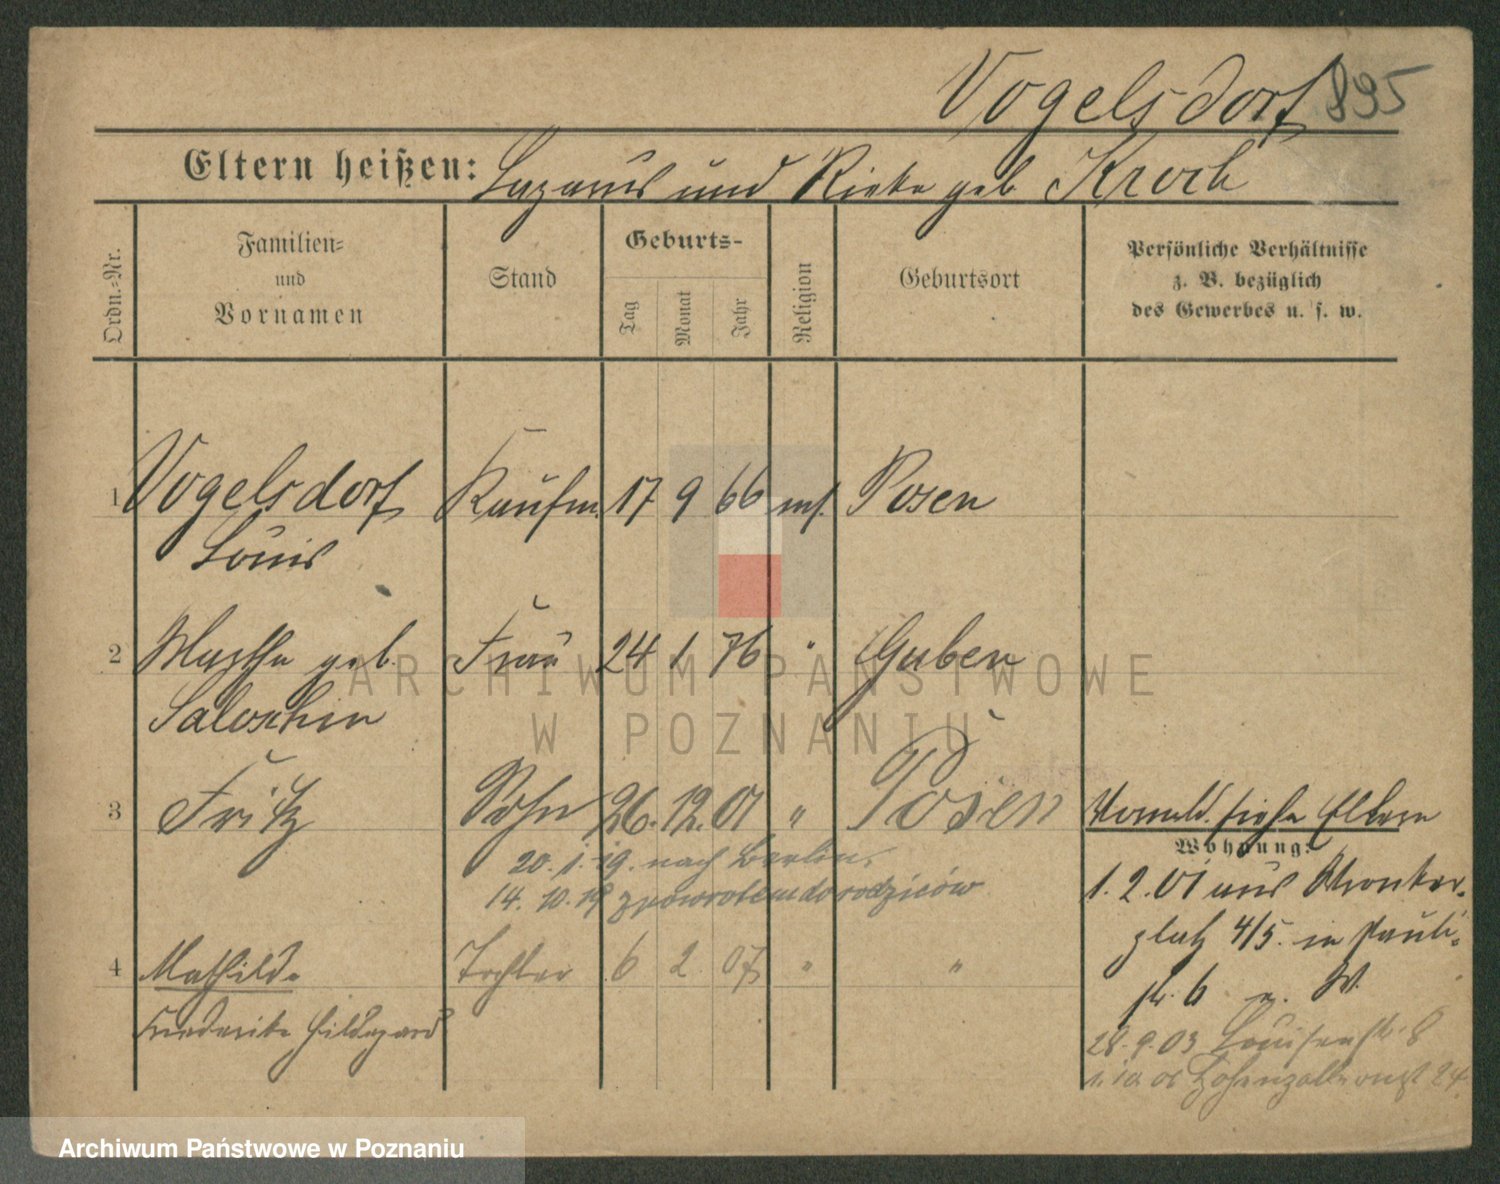 Vogelsdorf 895
Eltern heißen: Lazarus und Rieke geb Kroch
Ordn.-Nr.
Familien-
und
Vornamen
Stand
Geburts-
Tag
Monat
Jahr
Religion
Geburtsort
Persönliche Verhältnisse
z. B. bezüglich
des Gewerbes u. s. w.
1 Vogelsdorf Kaufm. 17 9 66 mos. Posen
Louis
2 Martha geb. Frau 24 1 76 " Guben
Saloschin
3 Fritz Sohn 26. 12. 01 " Posen
20. 1. 19. nach Berlin.
14. 10. 19 zpowrotem do rodziców
4 Mathilde Tochter 6 2 07 " "
Friederike Hildegard
siehe Eltern
Wohnung:
1. 2. 01 aus Wronker-
platz 4/5. in Pauli-
str. 6 n. W.
28. 9. 03 Louisenstr. 8
1. 10 06 Hohenzollernst 24
ARCHIWUM PAŃSTWOWE
W POZNANIU
Archiwum Państwowe w Poznaniu